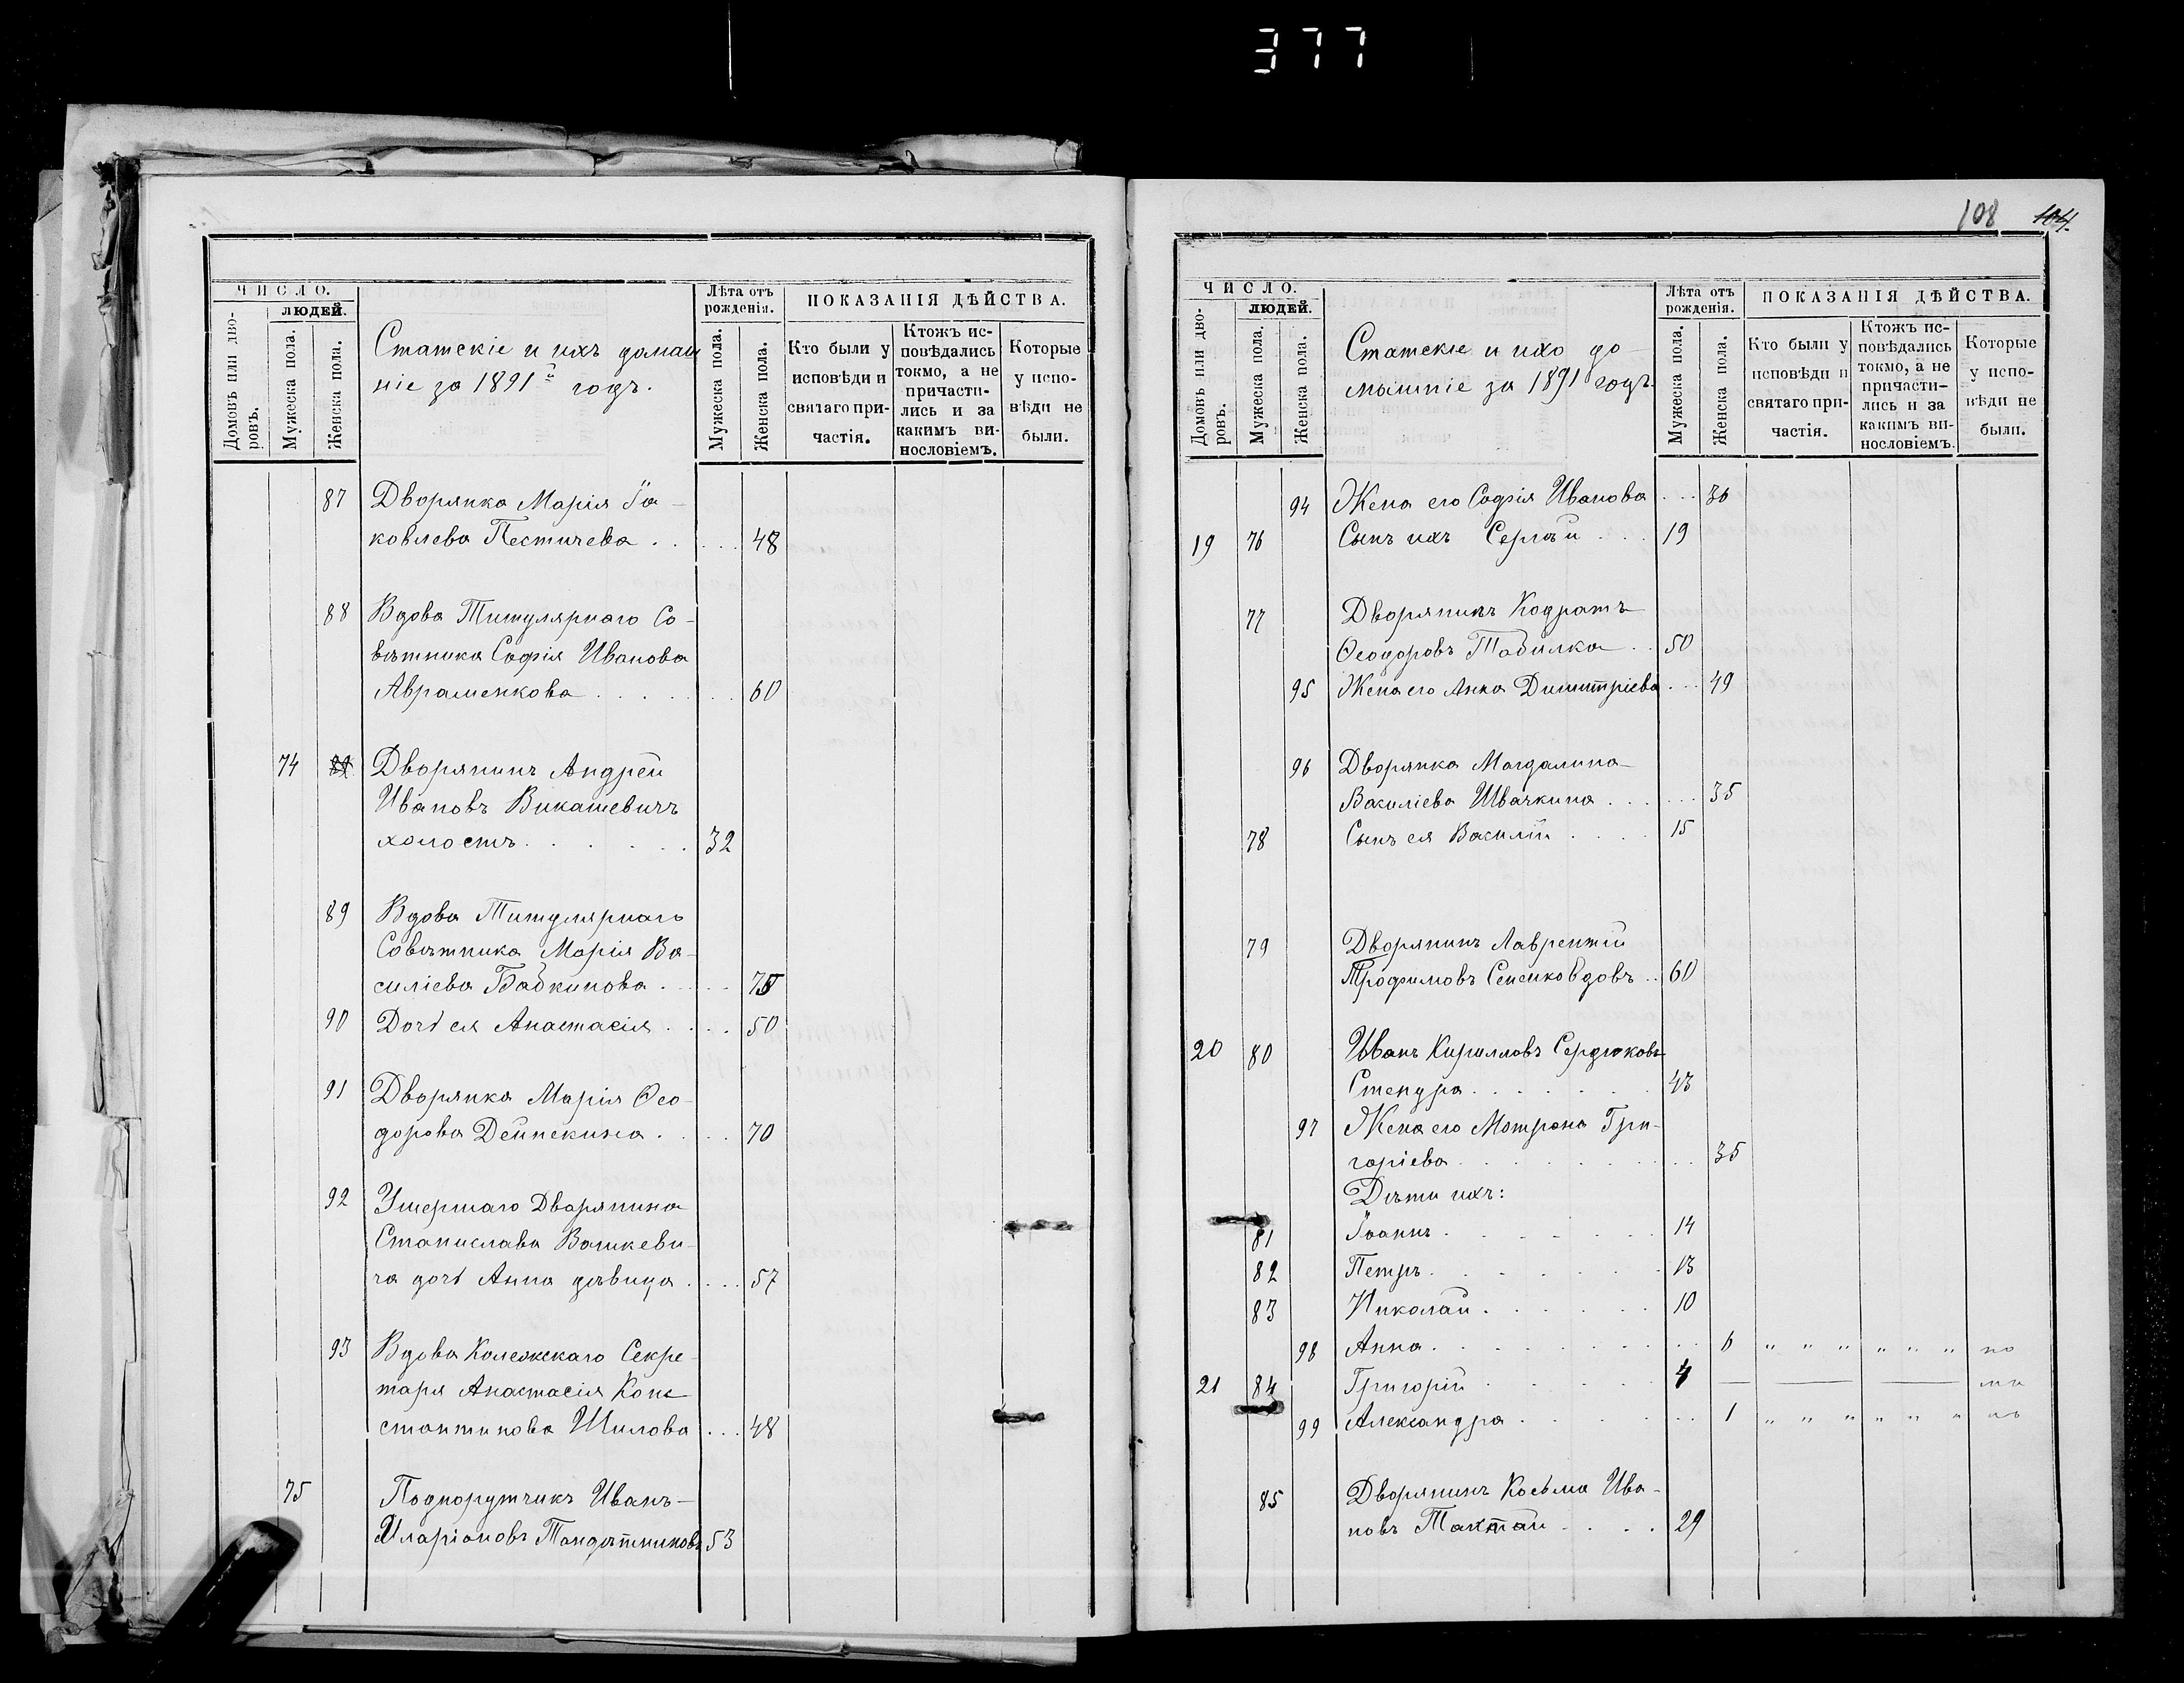 377
ЧИСЛО.
Домовъ или дво-
ровъ.
ЛЮДЕЙ.
Мужеска пола.
Женска пола.
Статскіе и ихъ домаш
ніе за 1891й годъ.
Лѣта отъ
рожденія.
Мужеска пола.
Женска пола.
ПОКАЗАНІЯ ДѢЙСТВА.
Кто были у
исповѣди и
святаго при-
частія.
Ктожъ ис-
повѣдались
токмо, а не
причасти-
лись и за
какимъ ви-
нословіемъ.
Которые
у испо-
вѣди не
были.
87 Дворянка Марія Іа-
ковлева Пестичева . . . . . 48
88 Вдова Титулярнаго Со-
вѣтника Софія Иванова
Авраменкова . . . . . . . 60
74 Дворянинъ Андрей
Ивановъ Викашевичъ
холостъ . . . . . . 32
89 Вдова Титулярнаго
Совѣтника Марія Ва-
силіева Бабкинова . . . . 75
90 Дочь ея Анастасія . . . . 50
91 Дворянка Марія Ѳео-
дорова Дейнекина . . . . 70
92 Умершаго Дворянина
Станислава Вашкеви-
ча дочь Анна дѣвица . . . . 57
93 Вдова Колежскаго Секре-
таря Анастасія Конс-
стантинова Шилова . . . 48
75 Подпорутчикъ Иванъ
Иларіоновъ Тандѣтниковъ 53
108 104.
ЧИСЛО.
Домовъ или дво-
ровъ.
ЛЮДЕЙ.
Мужеска пола.
Женска пола.
Статскіе и ихъ до-
мышніе за 1891 годъ.
Лѣта отъ
рожденія.
Мужеска пола.
Женска пола.
ПОКАЗАНІЯ ДѢЙСТВА.
Кто были у
исповѣди и
святаго при-
частія.
Ктожъ ис-
повѣдались
токмо, а не
причасти-
лись и за
какимъ ви-
нословіемъ.
Которые
у испо-
вѣди не
были.
94 Жена его Софія Иванова . . . 36
19 76 Сынъ ихъ Сергѣй . . . 19
77 Дворянинъ Кодратъ
Ѳеодоровъ Табилка . . 50
95 Жена его Анна Димитріева . . . 49
96 Дворянка Магдалина
Василіева Швачкина . . . . . . 35
78 Сынъ ея Василій . . . . 15
79 Дворянинъ Лаврентій
Трофимовъ Сененко вдовъ . . 60
20 80 Иванъ Кирилловъ Сердюковъ
Стендра . . . . . . . 43
97 Жена его Матрона Гри-
горіева . . . . . . . . . 35
Дѣти ихъ:
81 Іоаннъ . . . . . . 14
82 Петръ . . . . . . . 13
83 Николай . . . . . 10
98 Анна . . . . . . . . . 6 " " " " " " по
21 84 Григорій . . . . . 4 — — — ма
99 Александра . . . . . . . 1 " " " " " " лѣ
85 Дворянинъ Косьма Ива-
новъ Тактай . . . . 29